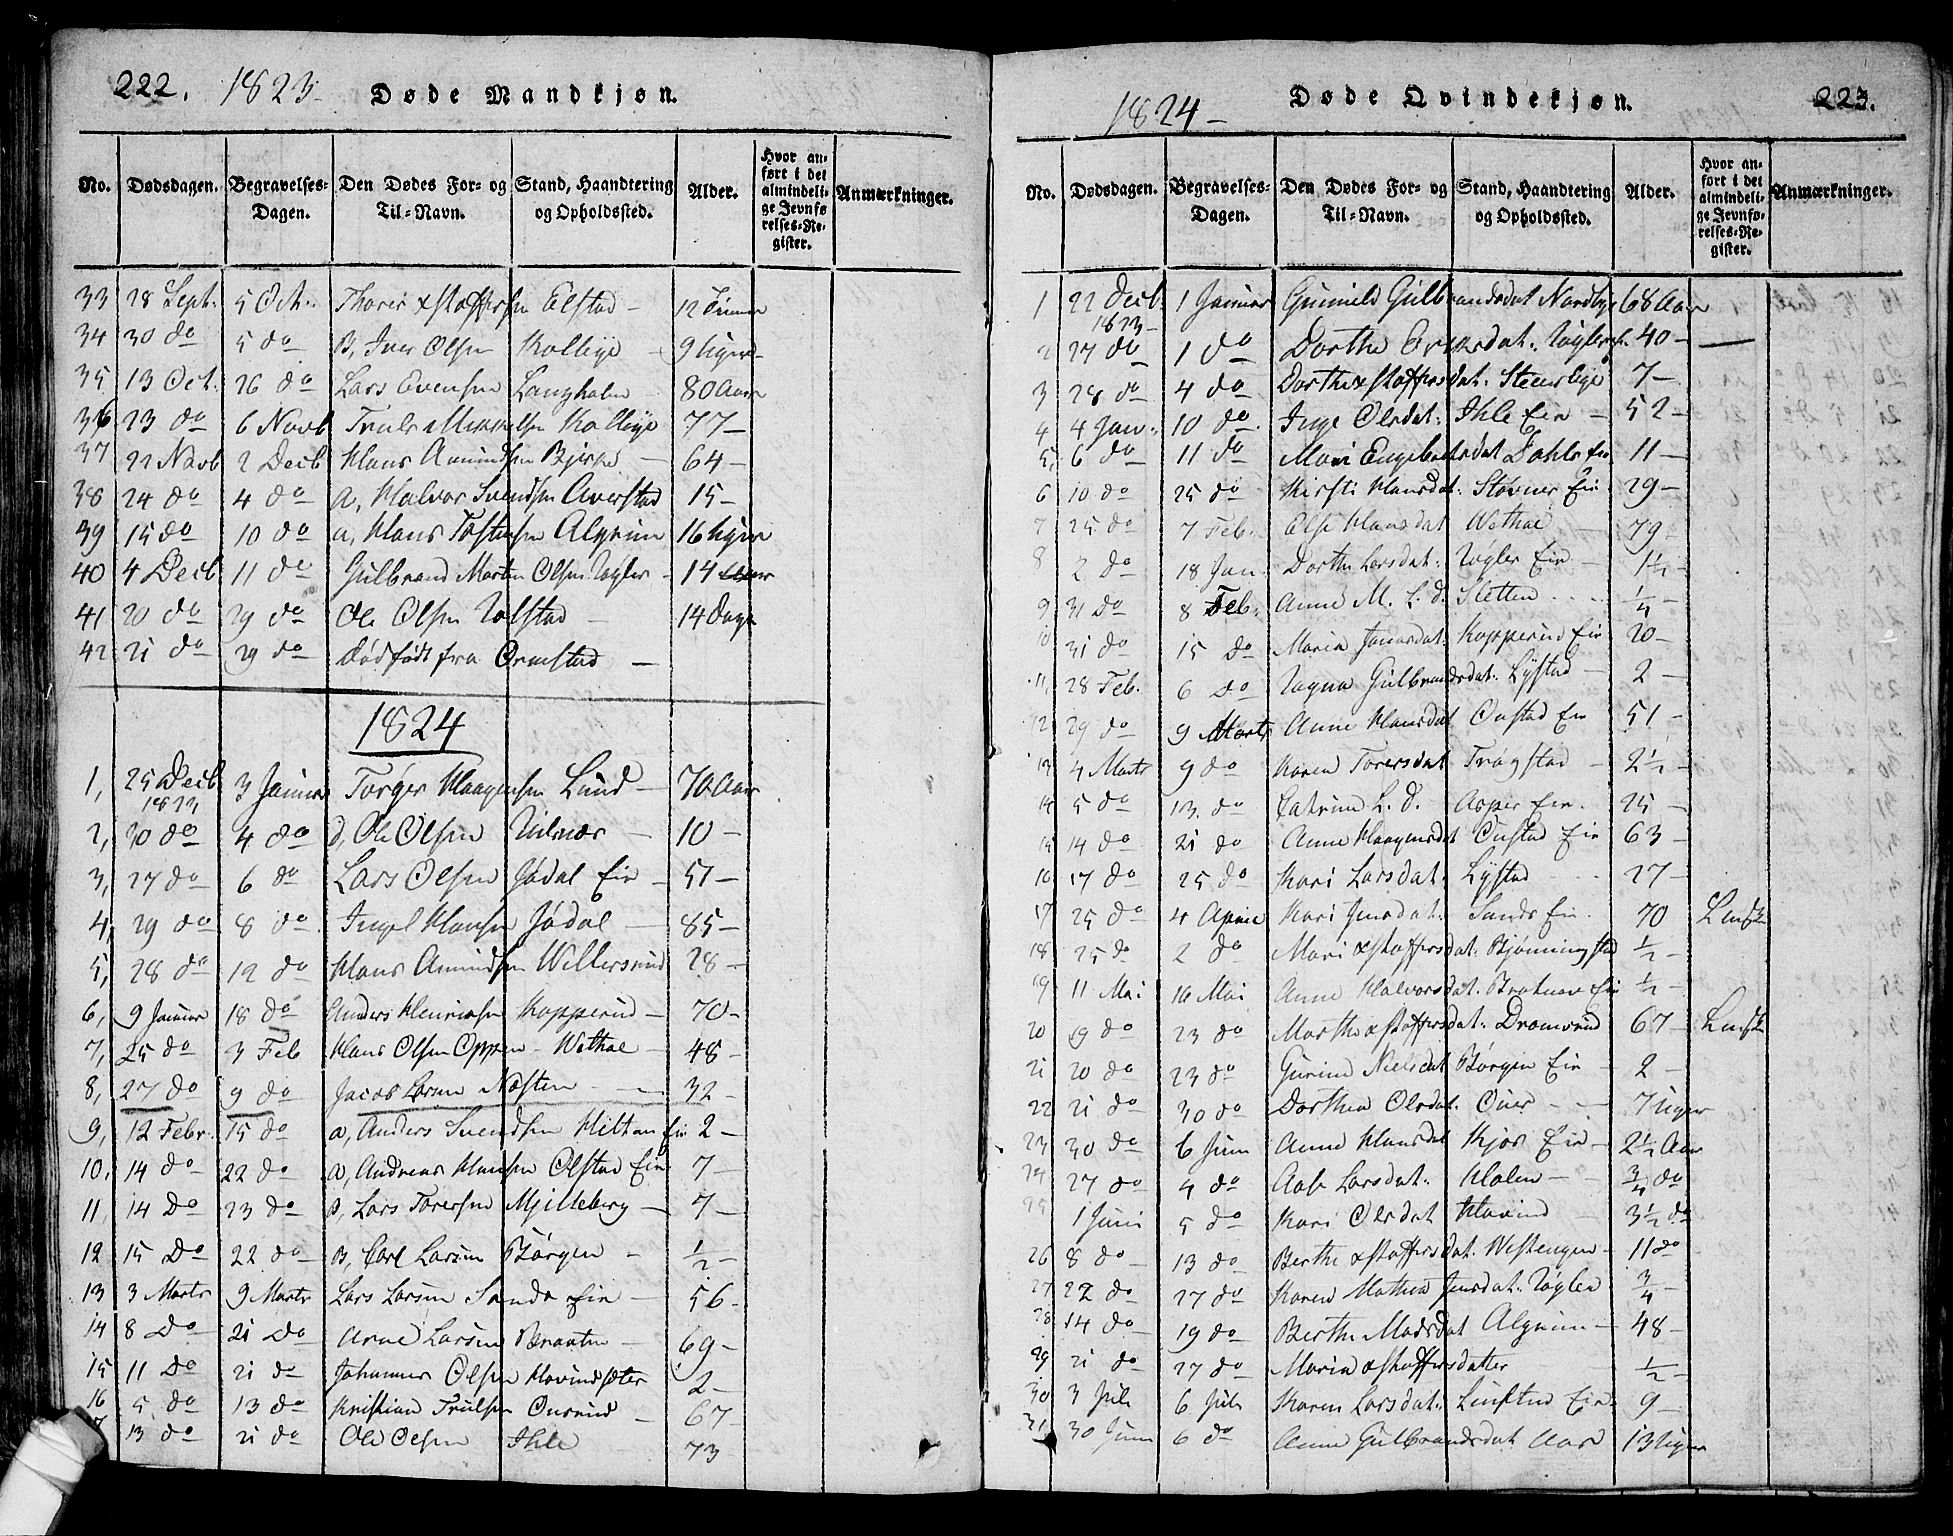 222. 1823 Døde Mandkjøn.
No. Dødsdagen. Begravelses-Dagen. Den Dødes For- og Til-Navn. Stand, Haandtering og Opholdssted. Alder. Hvor anført i det almindelige Jevnførelses-Register. Anmærkninger.
33 28 Sept. 5 Oct. Elstad 12 Timer
34 30 do 5 do B, Iver Olsen Kollbye 9 Uger
35 13 Oct. 26 do Lars Evensen Langholm 80 Aar
36 23 do 6 Novb Truls Mikkelsen Kollbye 77
37 22 Novb 2 Decb Hans Amundsen 64
38 24 do 4 do a, Halvor Svendsen Averstad 15
39 15 do 10 do a, Hans Tostensen Algrim 16 Uger
40 4 Decb 11 do Gulbrand Martin Olsen 14
41 20 do 29 do Ole Olsen 14 Dage
42 21 do 29 do Dødfødt fra Ormstad
1824
1, 25 Decb 1823 3 Januar Torger Haagensen Lund 70 Aar
2, 30 do 4 do d, Ole Olsen 10
3, 27 do 6 do Lars Olsen Jødal Eie 51
4, 29 do 8 do Hansen Jødal 85
5, 28 do 12 do Hans Amundsen 28
6, 9 Januar 18 do Anders Kopperud 70
7, 25 do 3 Feb Hans Olsen Wethal 48
8, 27 do 9 do Jacob Larsen Næsten 32
9, 12 Febr. 15 do a, Anders Svendsen Hilton Eie 2
10, 14 do 22 do a, Andreas Hansen Olstad Eie 7
11, 14 Do 23 do B, Lars Toresen 7
12 15 Do 22 do B, Carl Larsen Børgen ½
13 3 Marts 9 Marts Lars Larsen Sands Eie 56
14 8 Do 21 Do Arne Larsen Braaten 69
15 11 Do 21 do Johannes Olsen Hovindsæter 2
16 5 do 13 do Kristian Trulsen Onsrud 67
13 do 21 do Ole Olsen Ihle 73
1824 Døde Qvindekjøn. 223.
No. Dødsdagen. Begravelses-Dagen. Den Dødes For- og Til-Navn. Stand, Haandtering og Opholdssted. Alder. Hvor anført i det almindelige Jevnførelses-Register. Anmærkninger.
1 22 Decb. 1823 1 Januar Gunnild Gulbrandsdat Nordbye 68 Aar
2 27 do 1 do Dorthe 40
3 28 do 4 do 7
4 4 Jan. 10 do Inge Olsdat. Ihle Eie 52
5, 6 do 11 do Mari Engebretsdat Dahls Eie 11
6 10 do 25 do Kirsti Hansdat. Støvner Eie 29
7 25 do 7 Feb. Else Hansdat Wethal 79
8 2 do 18 Jan. Dorthe Larsdat. 1½
9 31 do 8 Feb. Anne M. L. d. Sletten ¼
10 31 do 15 do Maria Kopperud Eie 20
11, 28 Feb. 6 do Gulbrandsdat. Lystad 2
12 29 do 9 Marts Anne Hansdat Onstad Eie 51
13 4 Marts 9 do Karen Toresdat Trøgstad 2½
14 5 do 13. do Catrine L. d. Asper Eie. 25
15 14 do 21 do Anne Haagensdat Onstad Eie 63
16 17 do 25 do Kari Larsdat. Lystad 27
17 25 do 4 April Kari Jensdat. Sands Eie. 70
18 25 do 2 do Mari ½
19 11 Mai 16 Mai Anne Halvorsdat. ½
20 19 do 23 do Marthe 67
21 20 do 23 do Gurine Nielsdat Børgen Eie 2
22 21 do 30 do Dorthea Olsdat. 7 Uger
23 30 do 6 Juni Anne Hansdat Kjos Eie 2½ Aar
24 27 do 4 do Larsdat. Holen ¾ do
25 1 Juni 5 do Kari Olsdat Hovind 3½ do
26 8 do 13 do Berthe Westengen 11 do
27 22 do 27 do Karen Mathea Jensdat. ¾
28 14 do 19 do Berthe Madsdat Algrim 48
29 21 do 27 do Maria ½
30 3 Juli 6 Juli Karen Larsdat. Eie. 9
31 30 Juni 6 do Anne Gulbrandsdat Aas 13 Uger